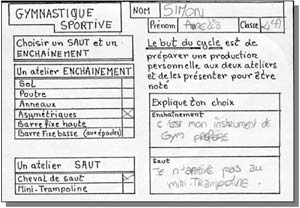 GYMNASTIQUE
SPORTIVE
Choisir un SAUT et un
ENCHAÎNEMENT
Un atelier ENCHAINEMENT
Sol
Poutre
Anneaux
Asymétriques
Barre fixe haute
Barre fixe basse (aux épaules)
Un atelier SAUT
Cheval de saut
Mini-Trampoline
NOM SIMON
Prénom Classe
Le but du cycle est de
préparer une production
personnelle aux deux ateliers
et de les présenter pour être
noté
Explique ton choix
Enchaînement
c'est mon instrument de
Gym
Saut
Je n'arrive pas au
mini-Trampoline.